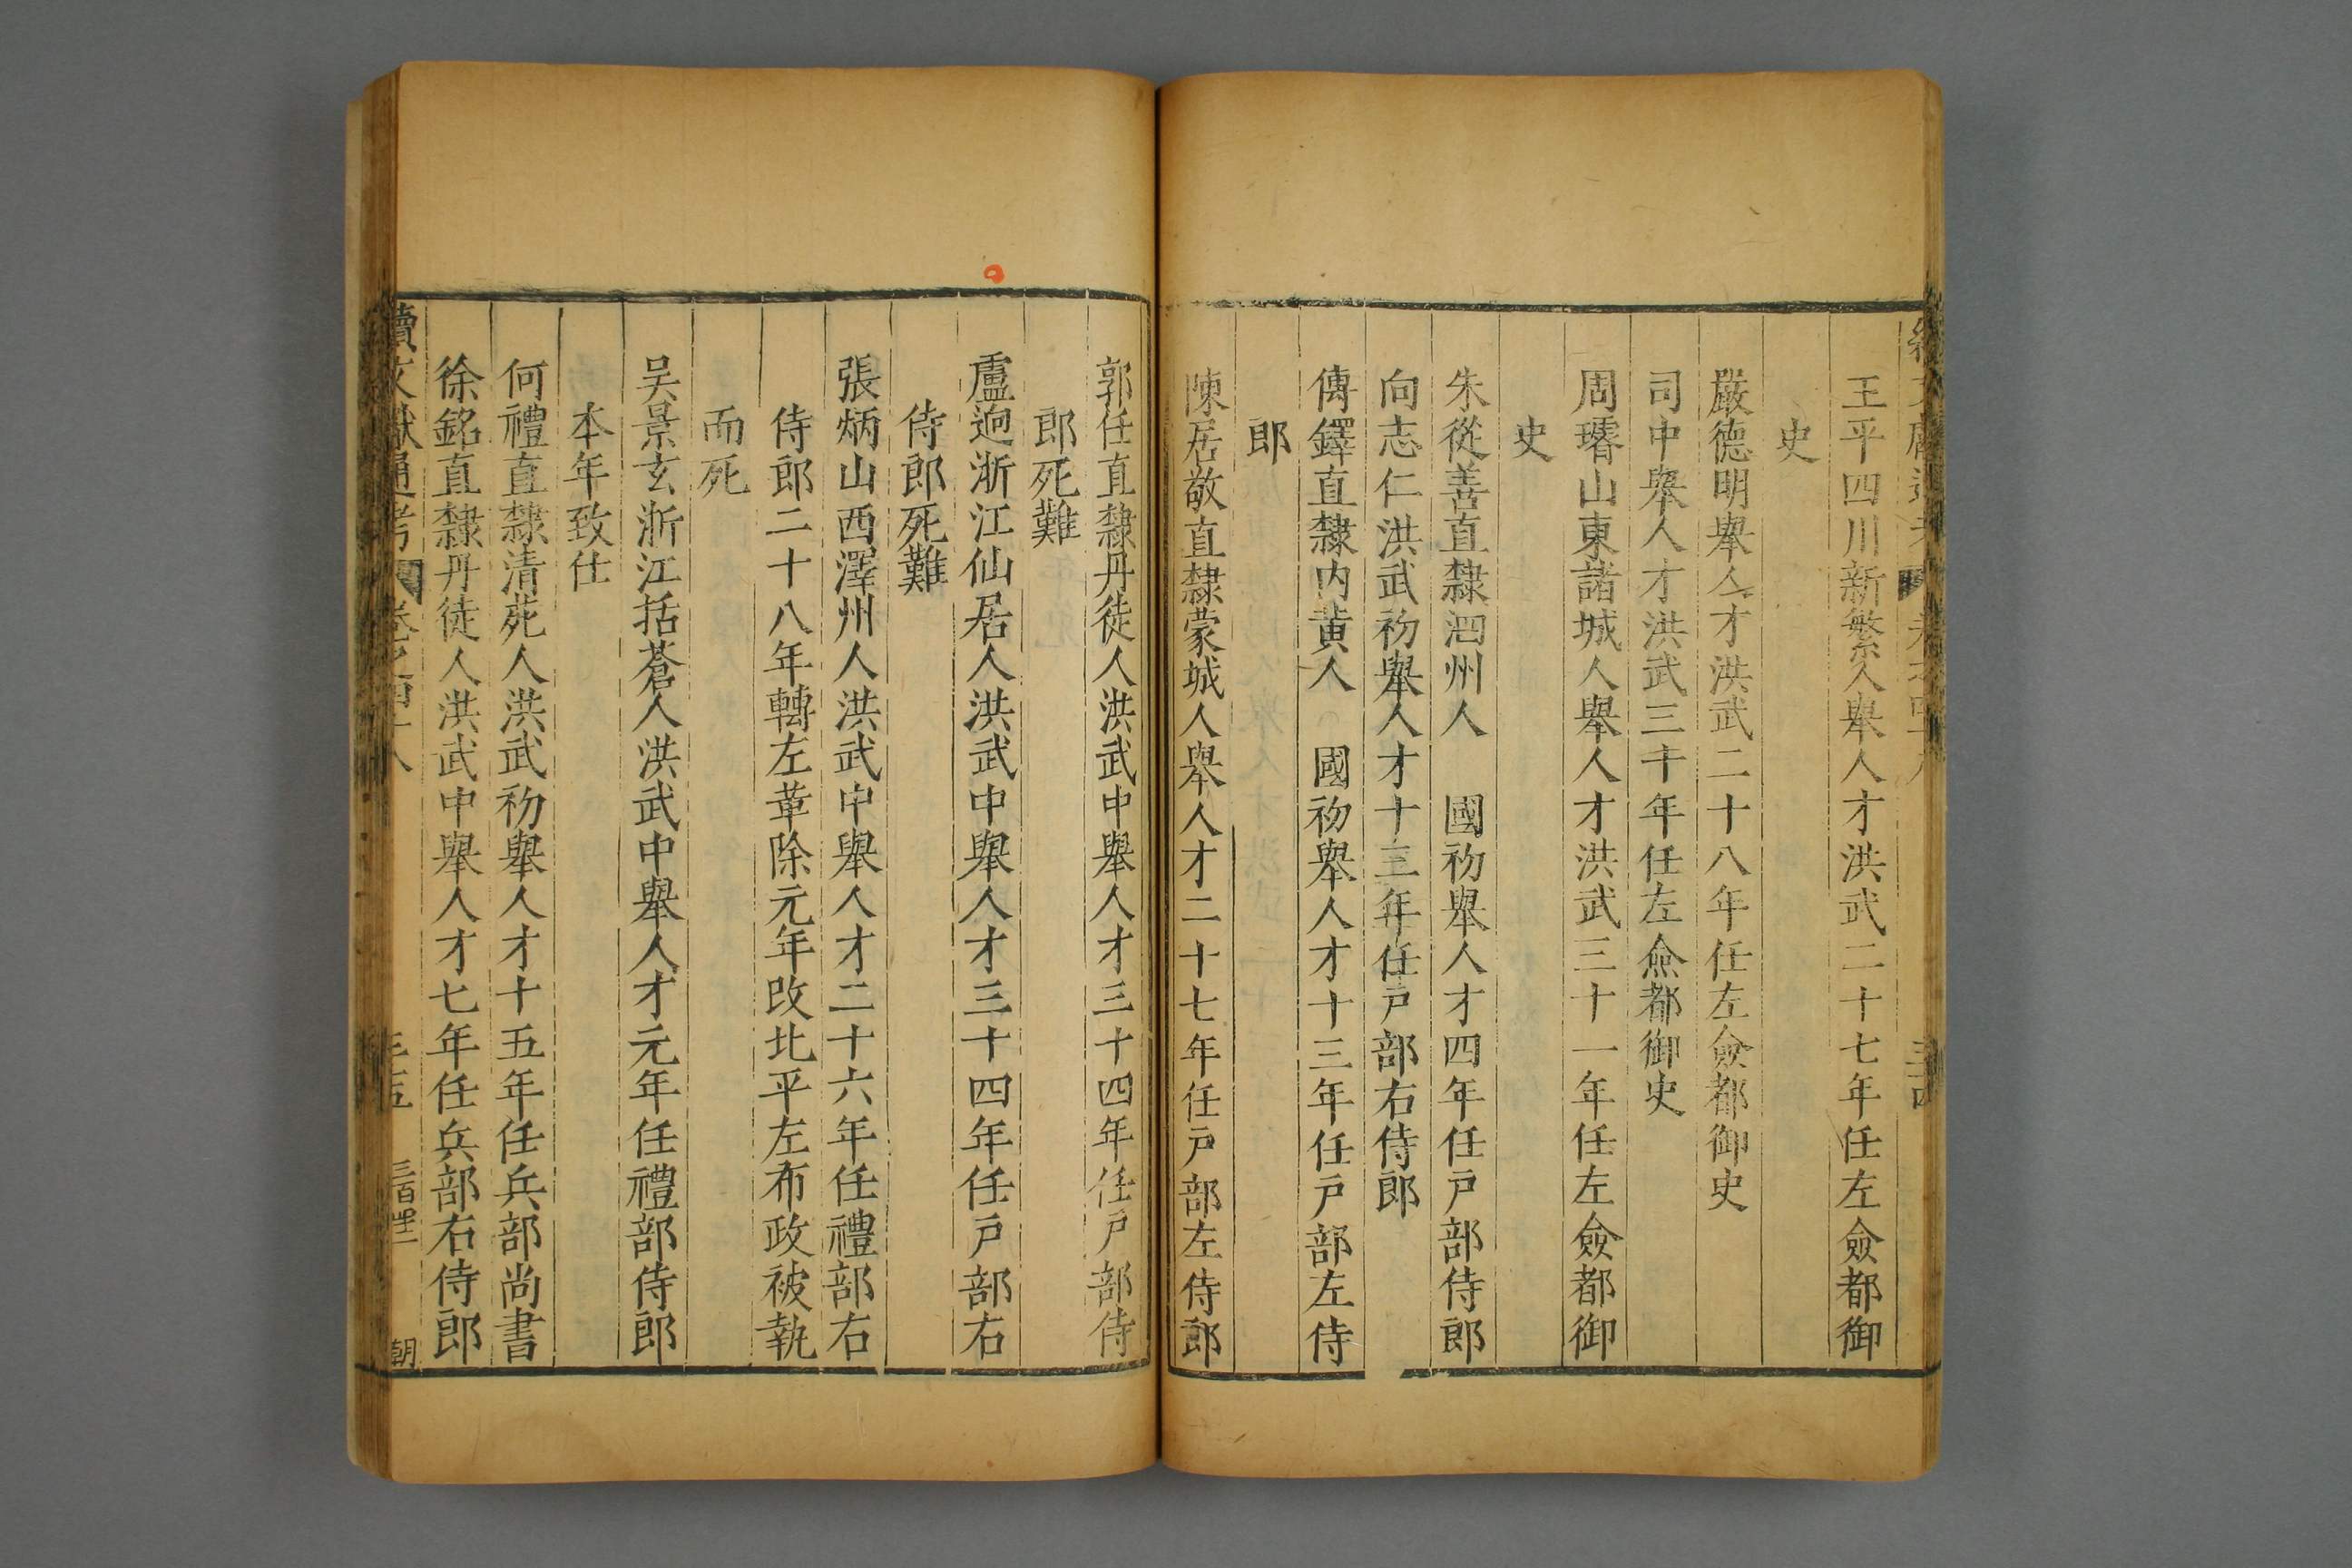 王平四川新繁人舉人才洪武二十七年任左僉都御
史
嚴德明舉人才洪武二十八年任左僉都御史
司中舉人才洪武三十年任左僉都御史
周璿山東諸城人舉人才洪武三十一年任左僉都御
史
朱從善直隸泗州人 國初舉人才四年任戸部侍郎
向志仁洪武初舉人才十三年任戸部右侍郎
傅鐸直隸内黄人 國初舉人才十三年任戸部左侍
郎
陳居敬直隸蒙城人舉人才二十七年任戸部左侍郎
郭任直隸丹徒人洪武中舉人才三十四年任戸部侍
郎死難
盧逈浙江仙居人洪武中舉人才三十四年任戸部右
侍郎死難
張炳山西澤州人洪武中舉人才二十六年任禮部右
侍郎二十八年轉左革除元年改北平左布政被執
而死
吴景玄浙江括蒼人洪武中舉人才元年任禮部侍郎
本年致仕
何禮直隸清苑人洪武初舉人才十五年任兵部尚書
徐銘直隸丹徒人洪武中舉人才七年任兵部右侍郎
續文獻通考 卷之四十八 三五 朝